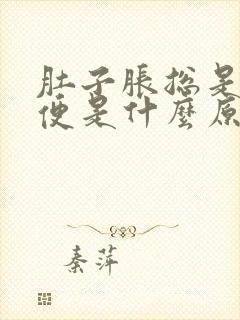 肚子脹总是
便是什麼原
秦萍